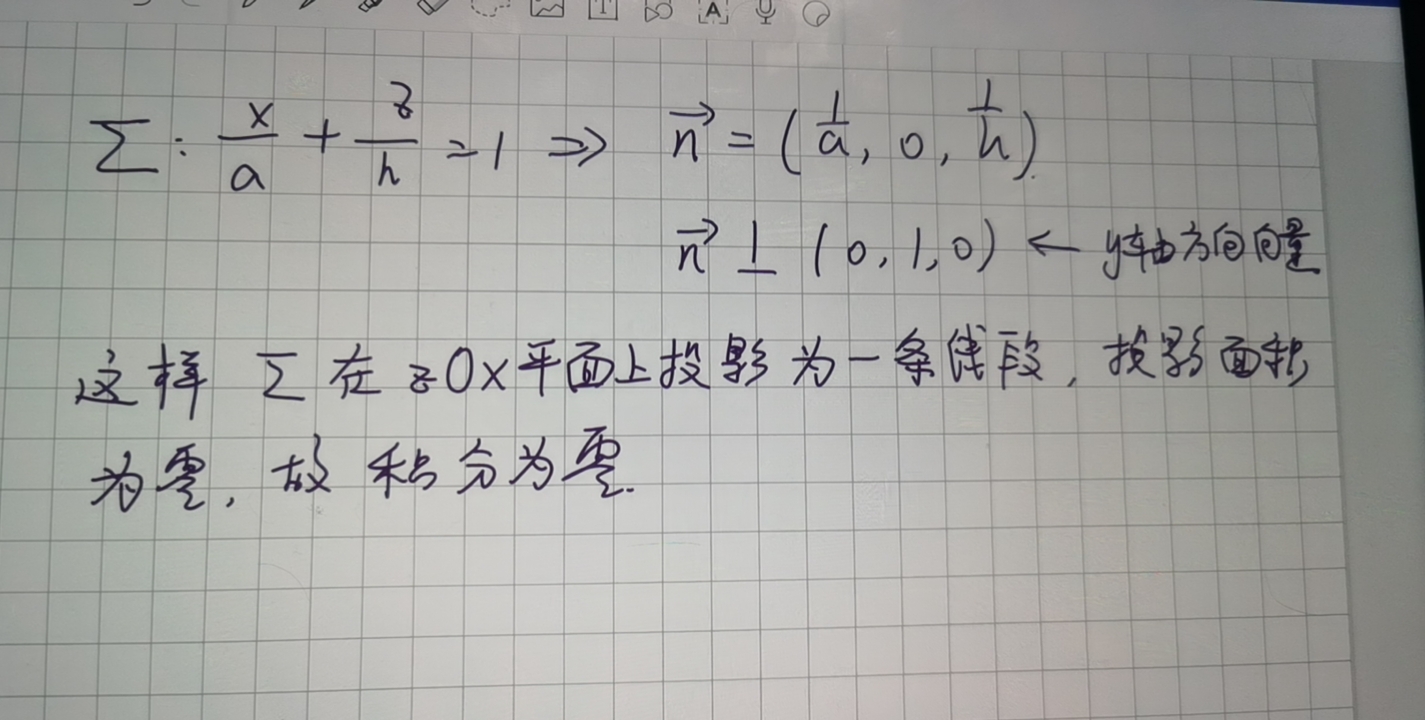 Σ: x/a + z/h = 1 ⇒ n⃗ = (1/a, 0, 1/h).
n⃗ ⊥ (0, 1, 0) ← y轴方向向量
这样 Σ 在 zOx平面上投影为一条线段, 投影面积
为零, 故积分为零.